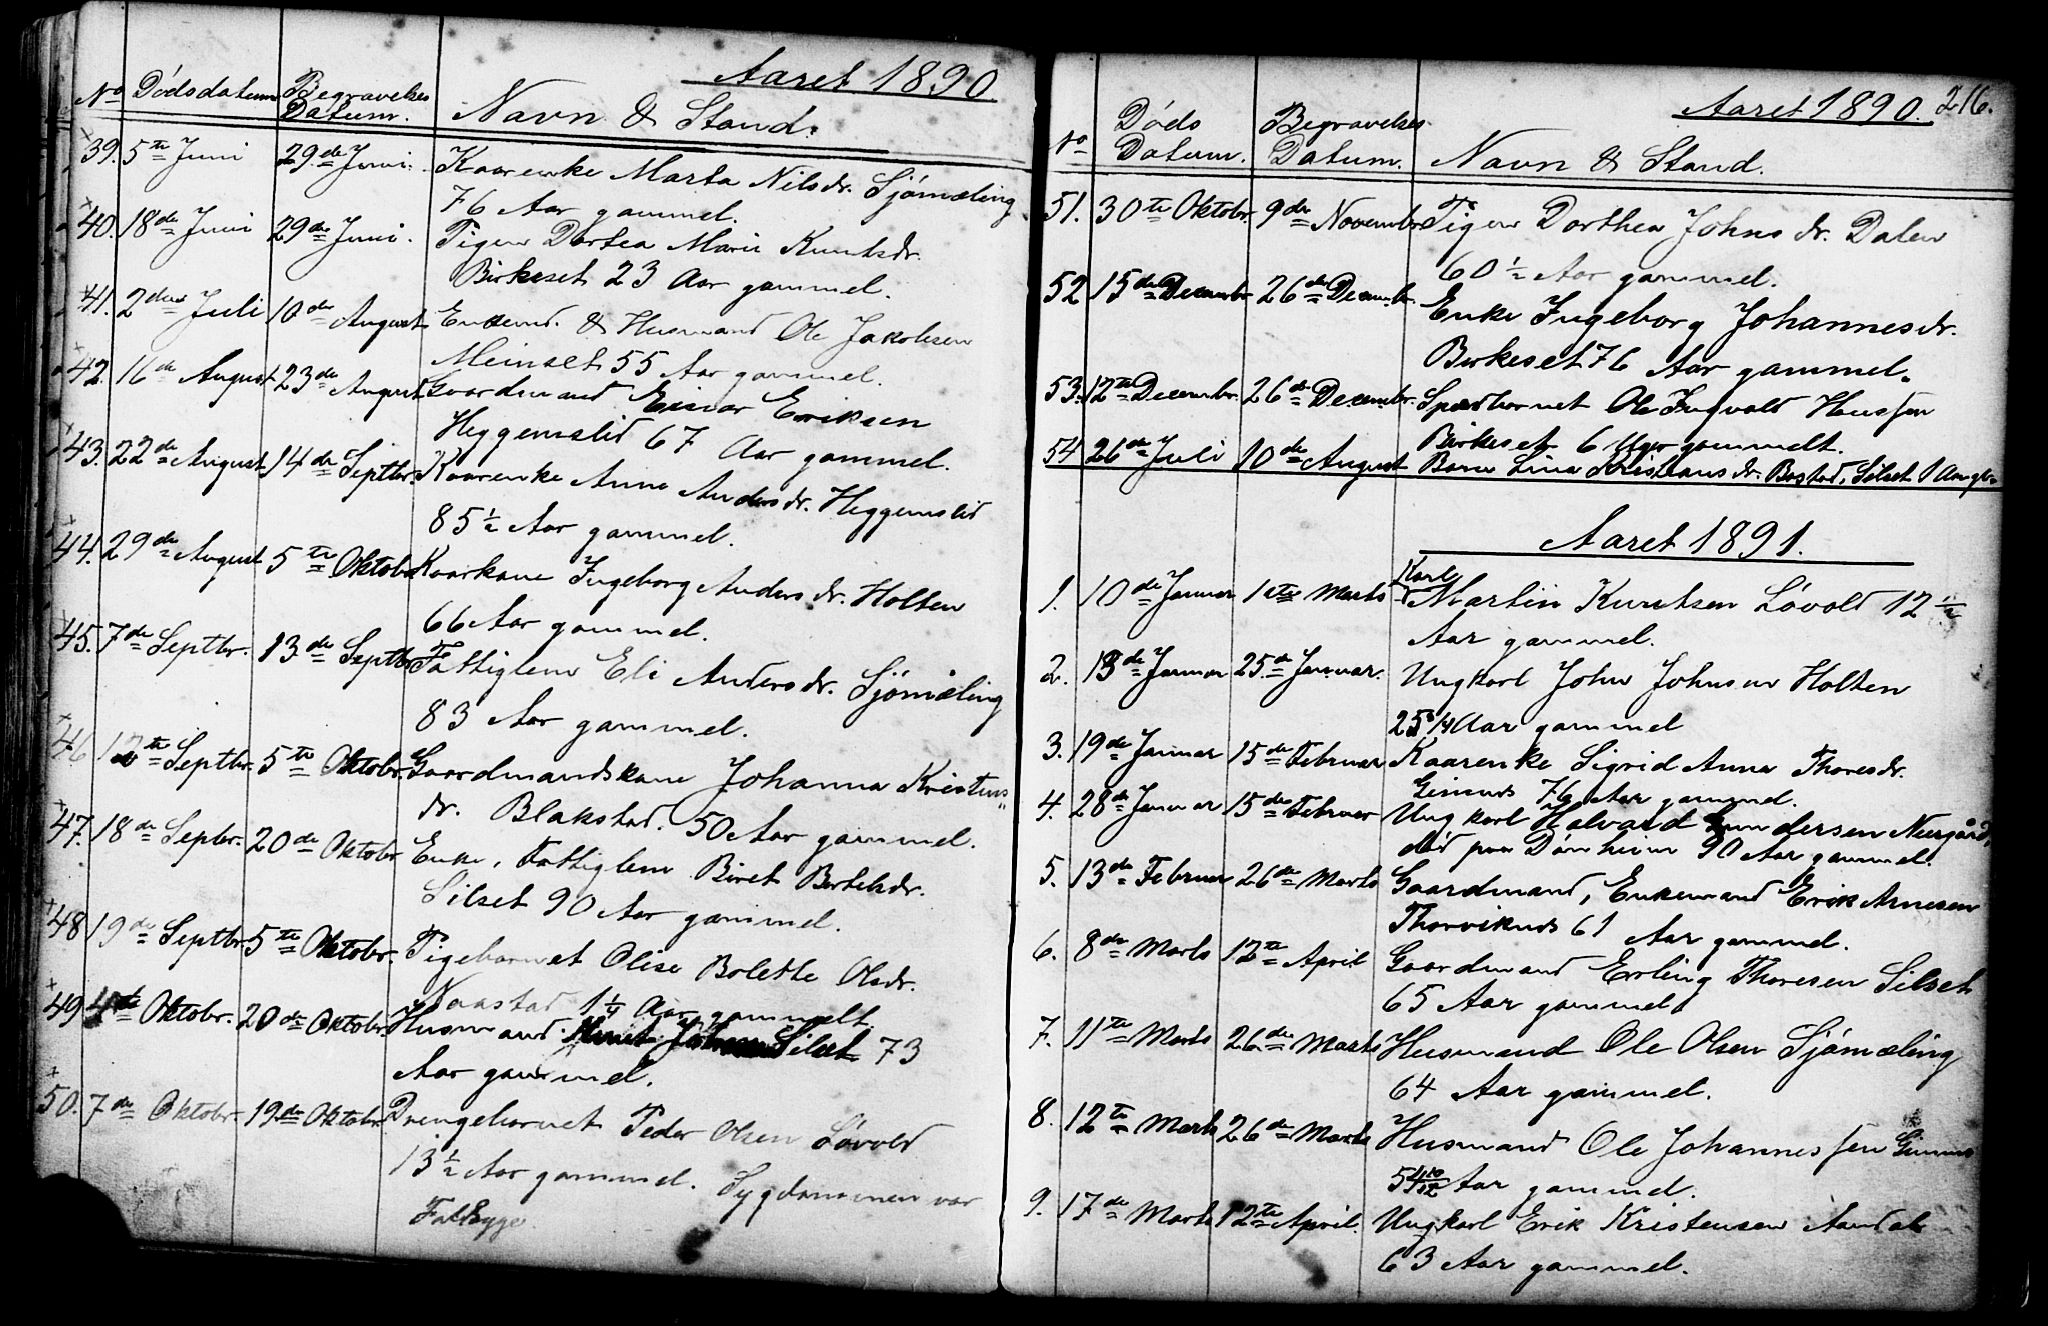 Aaret 1890.
No Dódsdatum Begravelses Datum. Navn & Stand.
39. 5te Juni 29.de Juni. Kaarenke Marta Nilsdr. Sjömæling
76 Aar gammel.
40. 18de Juni 29de Juni. Pigen Dortea Marie Knutsdr.
Birkeset 23 Aar gammel.
41. 2den Juli 10de August Enkemd. & Husmand Ole Jakobsen
Meinset 55 Aar gammel.
42. 16de August 23de August Gaardmand Einar Eriksen
Heggemslid 67 Aar gammel.
43. 22de August 14de Septbr. Kaarenke Anne Andersdr. Heggemslid
85 1/2 Aar gammel.
44. 29de August 5te Oktobr Kaarkone Ingeborg Andersdr. Holten
66 Aar gammel.
45. 7de Septbr. 13de Septbr Fattiglem Eli Andersdr. Sjömæling
83 Aar gammel.
46 12te Septbr. 5te Oktobr. Gaardmandskone Johanna Kristens
dr. Blakstad. 50 Aar gammel.
47. 18de Septbr. 20de Oktobr Enke, Fattiglem Biret Bertelsdr.
Silset 90 Aar gammel.
48 19de Septbr 5te Oktobr. Pigebarnet Olise Bolette Olsdr.
Naastad 1 1/4 Aar gammelt.
49 4de Oktobr. 20de Oktobr. Husmand Silset 73
Aar gammel.
50. 7de Oktobr. 19de Oktobr. Drengebarnet Peder Olsen Lóvold
13 1/2 Aar gammel. Sygdommen var
Faldsyge.
Aaret 1890. 216.
No Döds Datum. Begravelses Datum. Navn & Stand.
51. 30te Oktobr. 9de Novembr Pigen Dorthea Johnsdr. Dalen
60 1/2 Aar gammel.
52 15de Decembr. 26de Decembr. Enke Ingeborg Johannesdr.
Birkeset 76 Aar gammel.
53. 12te Decembr. 26de Decembr. Spædbarnet Ole Ingvald Hansen
Birkeset 6 Uger gammelt.
54 26de Juli 10de August Barn Lina Kristiansdr. Bostad, Silset 1 Aar gl.
Aaret 1891.
1. 10de Januar 1ste Marts Karl Martin Knutsen Lóvold 12 1/2
Aar gammel.
2. 13de Januar 25.de Januar. Ungkarl John Johnsen Holten
25 3/4 Aar gammel
3. 19de Januar 15de Februar Kaarenke Sigrid Anna Thoresdr.
Gimnes 76 Aar gammel.
4. 28de Januar 15de Februar Ungkarl Halvard Gundersen Neergård,
död paa Dönheim 90 Aar gammel.
5. 13de Februar 26de Marts Gaardmand, Enkemand Erik Arnesen
Thorviknes 61 Aar gammel.
6. 8de Marts 12te April Gaardmand Erling Thoresen Silset
65 Aar gammel.
7. 11te Marts 26de Marts Husmand Ole Olsen Sjömæling
64 Aar gammel.
8. 12te Marts 26de Marts Husmand Ole Johannessen Gimnes
54 10/12 Aar gammel.
9. 17de Marts 12te April. Ungkarl Erik Kristensen Aandal
63 Aar gammel.